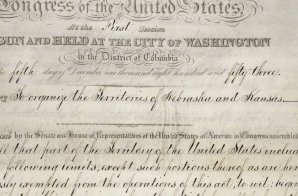 Congress of the United States,
At the First Session
GUN AND HELD AT THE CITY OF WASHINGTON
in the District of Columbia
fifth day of December one thousand eight hundred and fifty three.
To organize the Territories of Nebraska and Kansas
by the Senate and House of Representatives of the United States of America in Congress assembled
all that part of the Territory of the United States includ
following limits, except such portions thereof as are here
ssly exempted from the operations of this act, to wit: be